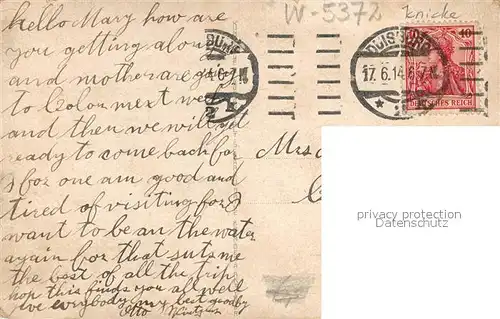 W-5372 Knicke
hello Mary how are
you getting alon
and mother are going
to Coloun next we
and then we will get
ready to come back for
I for one am good and
tired of visiting for I
want to be an the water
again for that suts me
the best of all the trip
hop this finds you all well
give everybody my best goodby
Otto
DUISBURG
17.6.14.6-7.N.
10
DEUTSCHES REICH
Mrs
privacy protection